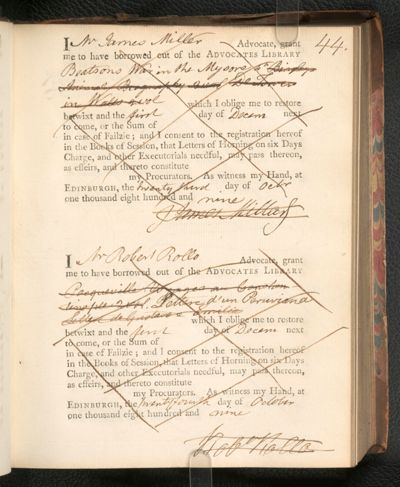 44.
I Mr James Miller Advocate, grant
me to have borrowed out of the ADVOCATES LIBRARY
Beatsons War in the Mysore &
Animal Biography
in Wales 2 vol which I oblige me to restore
betwixt and the first day of Decem next
to come, or the Sum of
in case of Failzie; and I consent to the registration hereof
in the Books of Session, that Letters of Horning on six Days
Charge, and other Executorials needful, may pass thereon,
as effeirs, and thereto constitute
my Procurators. As witness my Hand, at
EDINBURGH, the twenty third day of Octr
one thousand eight hundred and nine
James Miller
I Mr Robert Rollo Advocate, grant
me to have borrowed out of the ADVOCATES LIBRARY
2 vol. Lettres d'un Peruviana
which I oblige me to restore
betwixt and the first day of Decem next
to come, or the Sum of
in case of Failzie; and I consent to the registration hereof
in the Books of Session, that Letters of Horning on six Days
Charge, and other Executorials needful, may pass thereon,
as effeirs, and thereto constitute
my Procurators. As witness my Hand, at
EDINBURGH, the twenty fourth day of October
one thousand eight hundred and nine
Robt Rollo